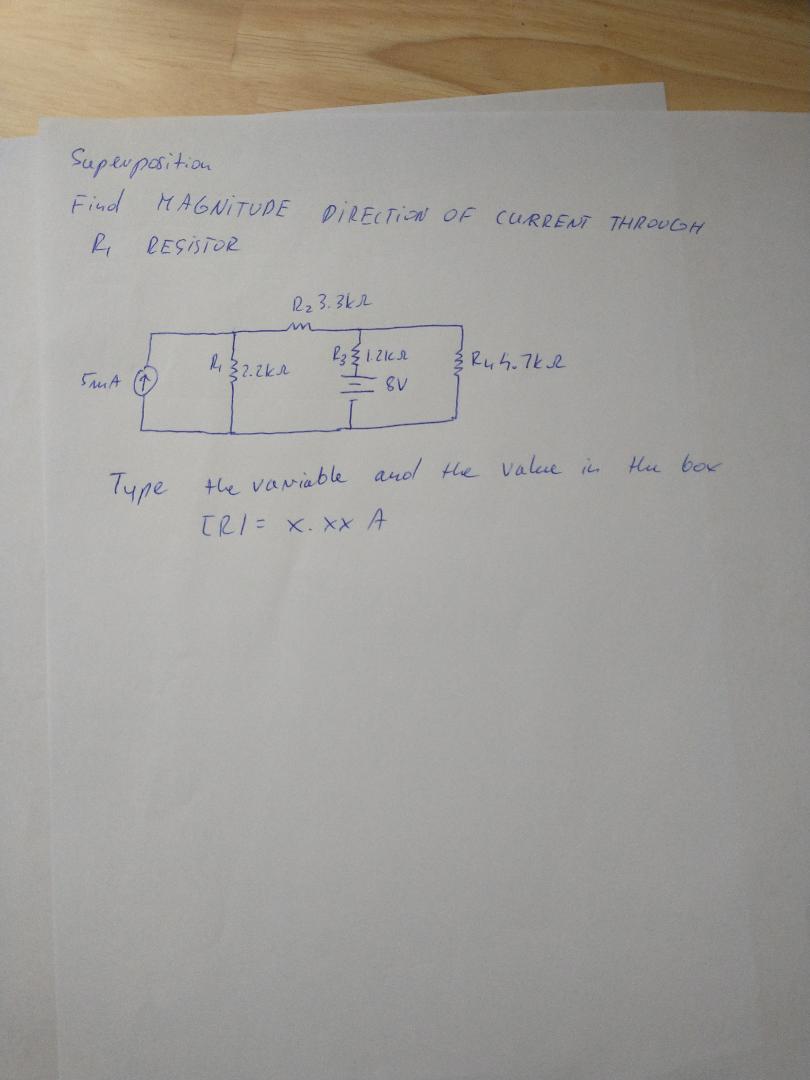 Superposition
Find MAGNITUDE DIRECTION OF CURRENT THROUGH
R₁ RESISTOR
R₂ 3.3kΩ
5mA
R₁ 2.2kΩ
R₃ 1.2kΩ
8V
R₄ 4.7kΩ
Type the variable and the value in the box
IR1 = x.xx A